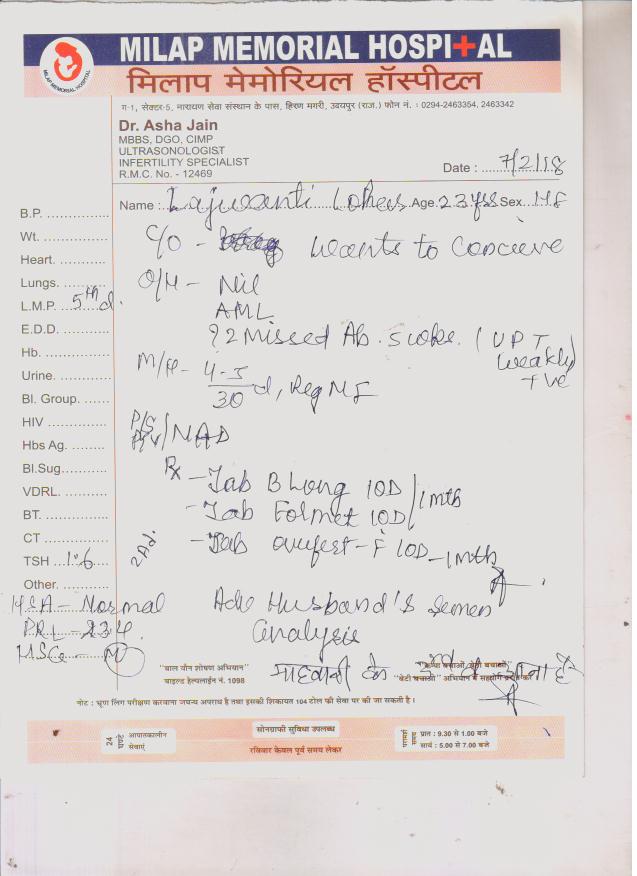 MILAP MEMORIAL HOSPITAL
MILAP MEMORIAL HOSPITAL
मिलाप मेमोरियल हॉस्पीटल
ग-1, सेक्टर-5, नारायण सेवा संस्थान के पास, हिरण मगरी, उदयपुर (राज.) फोन नं. : 0294-2463354, 2463342
Dr. Asha Jain
MBBS, DGO, CIMP
ULTRASONOLOGIST
INFERTILITY SPECIALIST
R.M.C. No. - 12469
Date : 7/2/18
Name : Lajwanti Age 23 yrs Sex
B.P.
Wt.
Heart.
Lungs.
L.M.P. 5th d.
E.D.D.
Hb.
Urine.
Bl. Group.
HIV
Hbs Ag.
Bl.Sug
VDRL.
BT.
CT
TSH 1.6
Other.
HSA - Normal
PRL - 23.4
HSG - N
C/O - wants to Conceive
O/H - Nil
AML
? 2 Missed Ab. (UPT weakly +ve
M/H - 4-5/30 d, Reg
P/S
P/V / NAD
Rx - Tab B Long 1OD
- Tab Folmet 1OD / 1 mth
- Tab ovufest-F 1OD - 1 mth
Adv Husband's Semen
analysis
माहवारी के आना है
"बाल यौन शोषण अभियान"
चाइल्ड हेल्पलाईन नं. 1098
"बेटी बचाओ" अभियान में सहयोग
नोट : भ्रूण लिंग परीक्षण करवाना जघन्य अपराध है तथा इसकी शिकायत 104 टोल फ्री सेवा पर की जा सकती है ।
24 घण्टे आपातकालीन सेवाएं
सोनोग्राफी सुविधा उपलब्ध
रविवार केवल पूर्व समय लेकर
परामर्श समय प्रात : 9.30 से 1.00 बजे
सायं : 5.00 से 7.00 बजे